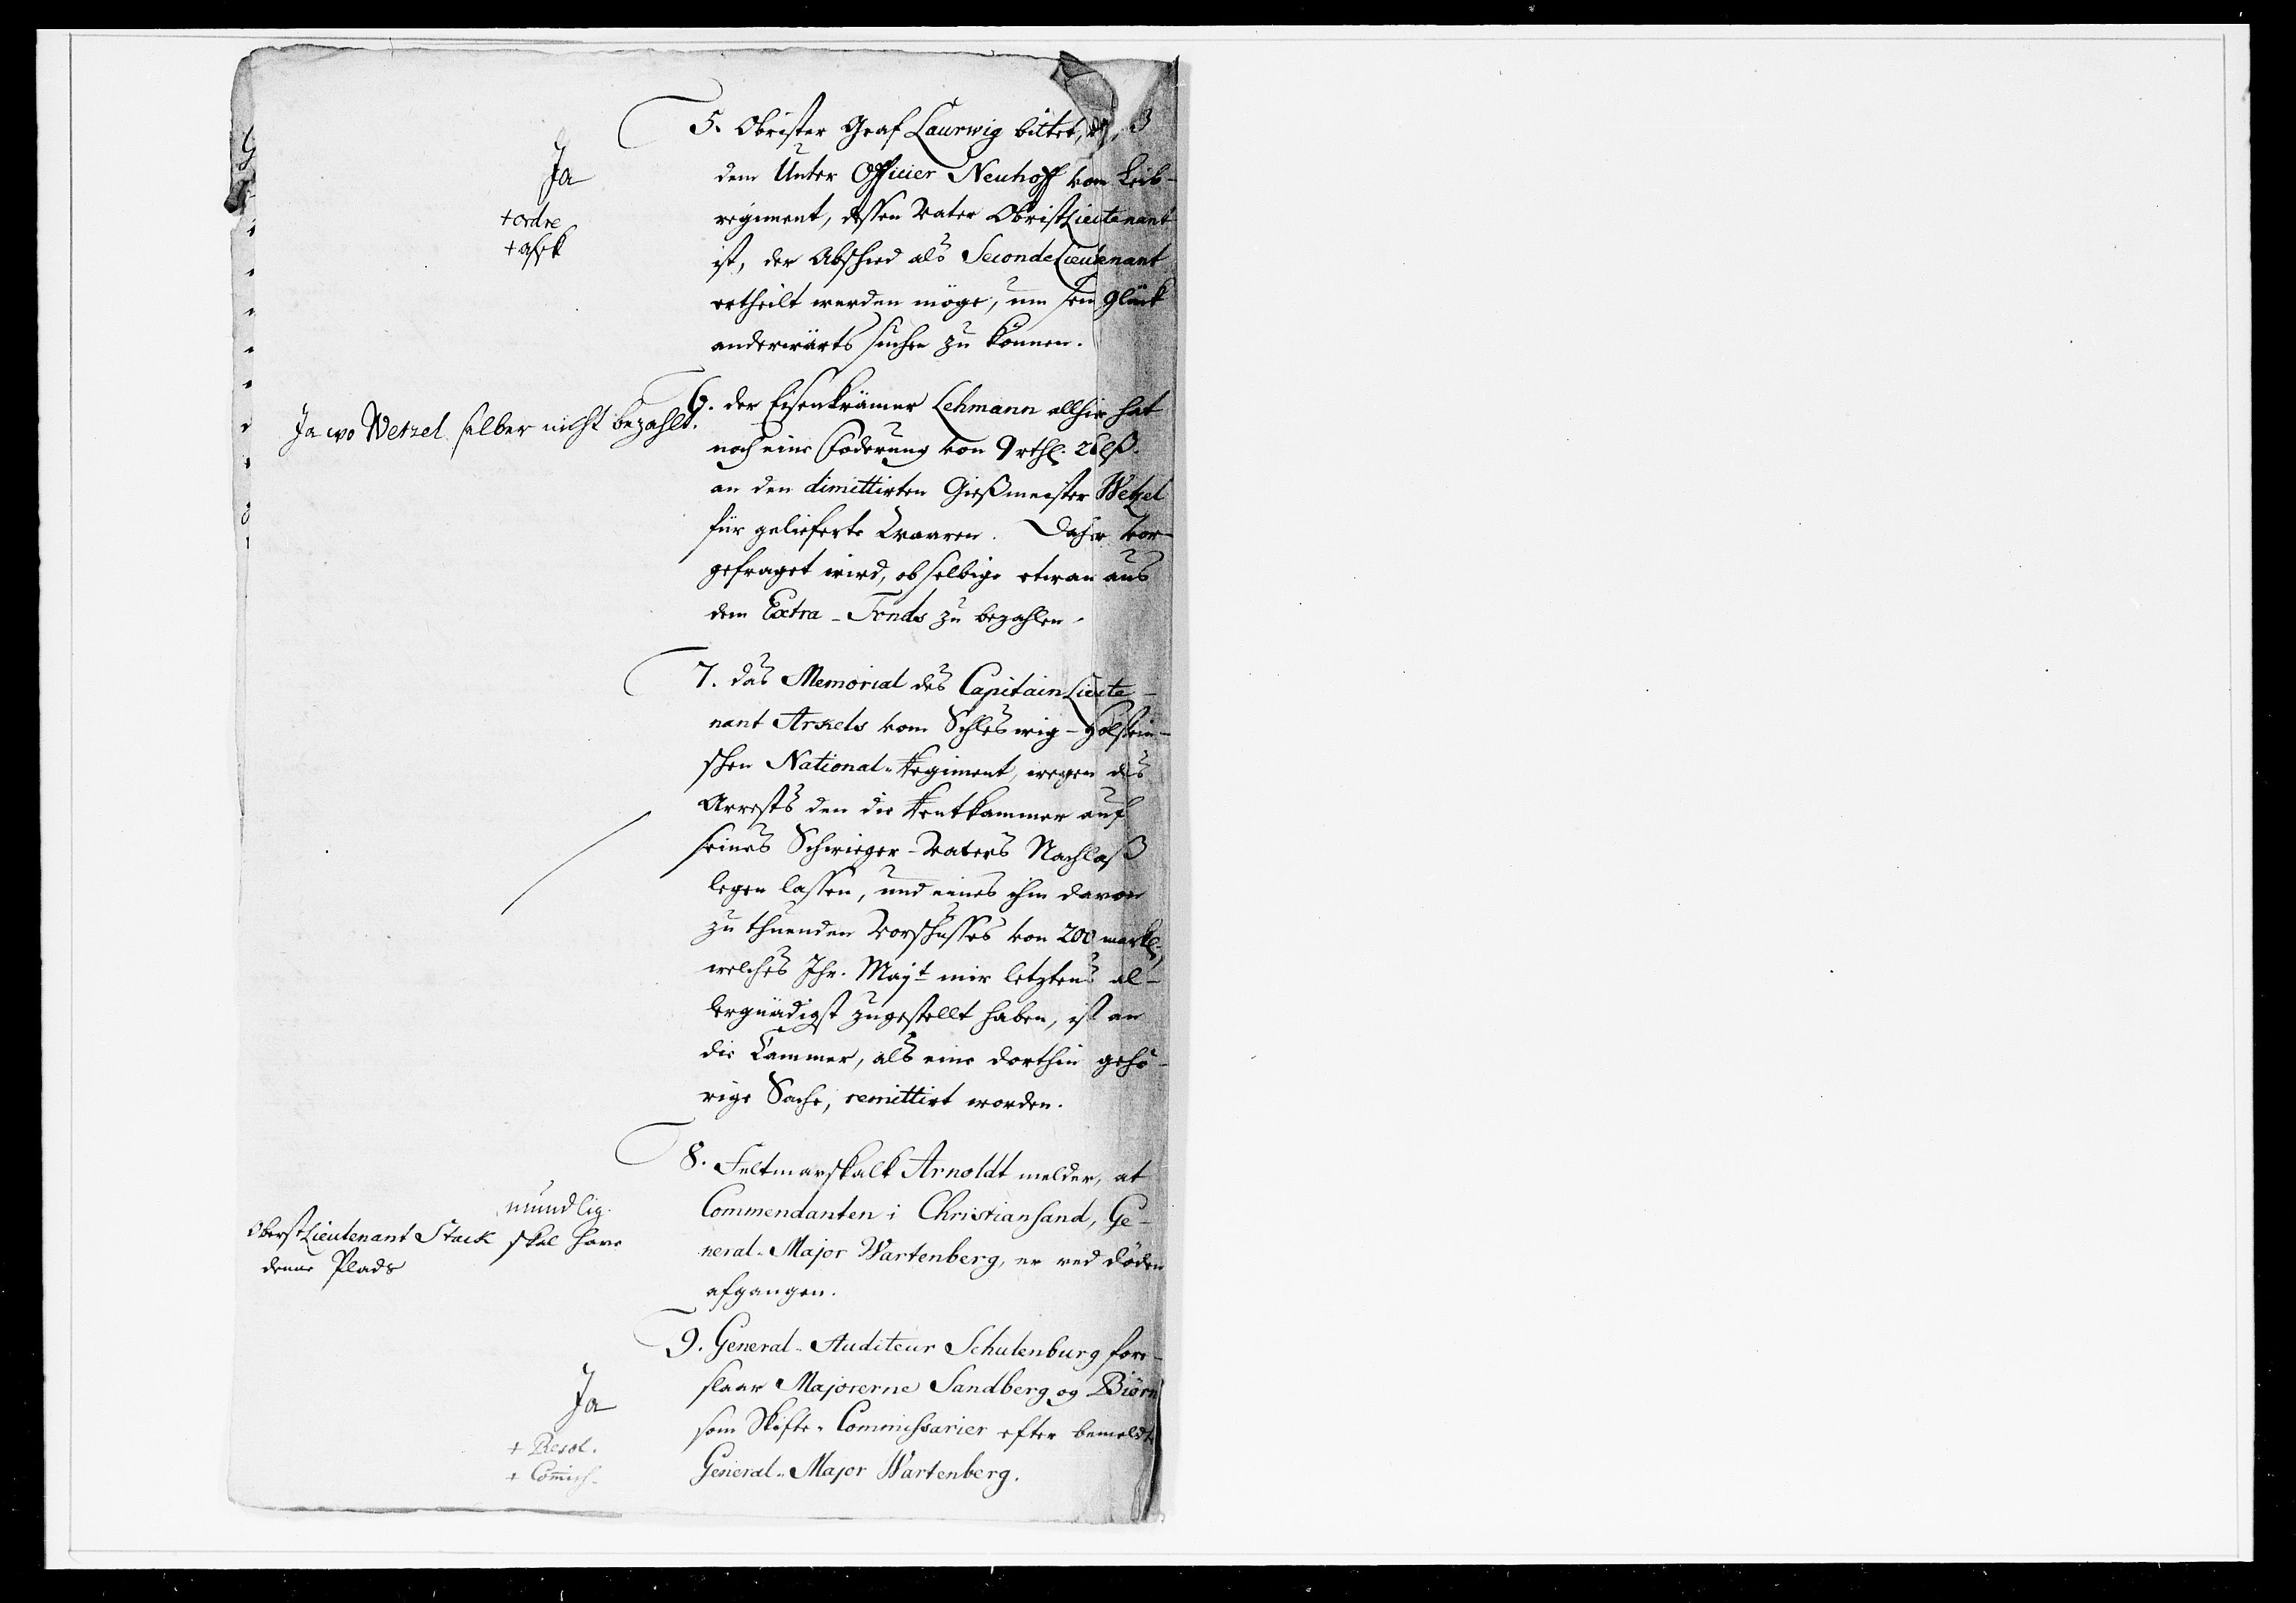 5. Obrister Graf Laurwig bittet, daß
dem Unter Officier Neuhoff vom Leib-
regiment, dessen Vater ObristLieutenant
ist, der Abschied als SecondeLieutenant
ertheilt werden möge, um sein Glück
anderwärts suchen zu können.
Ja
+ ordre
+ afsk
6. der Eisenkrämer Lehmann allhie hat
noch eine Foderung von 9 rthl.
an den dimittirten Gießmeister Wetzel
für gelieferte Waaren. Daher vor-
gefraget wird, ob selbige etwan aus
dem Extra-Fonds zu bezahlen.
Ja wo Wetzel selber nicht bezahlt.
7. das Memorial des CapitainLieute-
nant Arxels vom Schleswig-Holstein-
schen National-Regiment, wegen des
Arrests den die Rentkammer auf
seines Schwieger-Vaters Nachlaß
legen lassen, und eines ihm davon
zu thuenden Vorschusses von 200 markl.,
welches Ihr. Majt mir letztens al-
lergnädigst zugestellt haben, ist an
die Cammer, als eine dorthin gehö-
rige Sache, remittirt worden.
8. Feltmarskalk Arnoldt melder, at
Commendanten i Christiansand, Ge-
neral-Major Wartenberg, er ved döden
afgangen.
mundlig.
OberstLieutenant Stack skal have
denne Plads
9. General-Auditeur Schulenburg fore-
slaar Majorerne Sandberg og Biörn
som Skifte-Commissarier efter bemeldte
General-Major Wartenberg.
Ja
+ Resol.
+ Comiss.